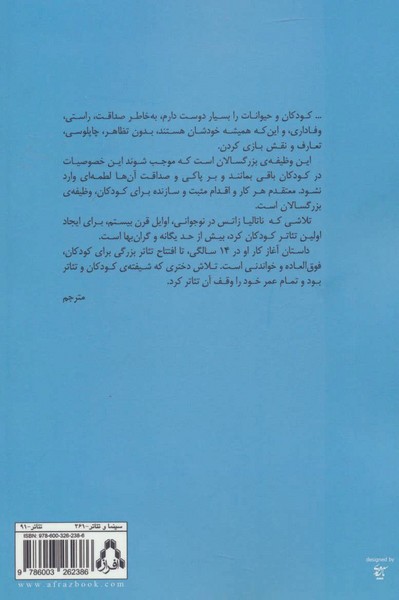 ... کودکان و حیوانات را بسیار دوست دارم، به‌خاطر صداقت، راستی،
وفاداری، و این‌که همیشه خودشان هستند، بدون تظاهر، چاپلوسی،
تعارف و نقش بازی کردن.
این وظیفه‌ی بزرگسالان است که موجب شوند این خصوصیات
در کودکان باقی بمانند و بر پاکی و صداقت آن‌ها لطمه‌ای وارد
نشود. معتقدم هر کار و اقدام مثبت و سازنده برای کودکان، وظیفه‌ی
بزرگسالان است.
تلاشی که ناتالیا زاتس در نوجوانی، اوایل قرن بیستم، برای ایجاد
اولین تئاتر کودکان کرد، بیش از حد یگانه و گران‌بها است.
داستان آغاز کار او در ۱۴ سالگی، تا افتتاح تئاتر بزرگی برای کودکان،
فوق‌العاده و خواندنی است. تلاش دختری که شیفته‌ی کودکان و تئاتر
بود و تمام عمر خود را وقف آن تئاتر کرد.
مترجم
سینما و تئاتر-۲۶۱ تئاتر-۹۱
ISBN: 978-600-326-238-6
9 786003 262386
افراز
www.afrazbook.com
designed by